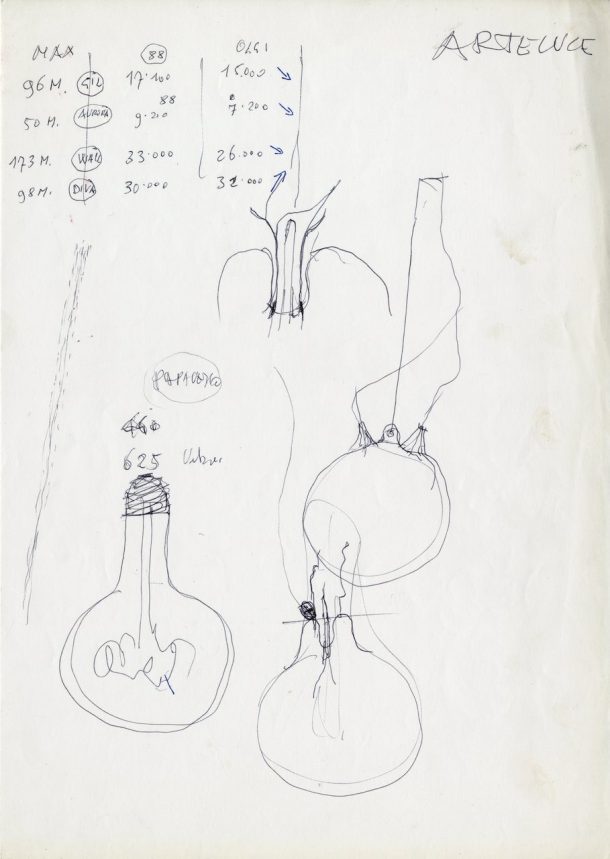 ARTELUCE
MAX 88 OGGI
96 M. GIL 17.100 15.000
88
50 M. AURORA 9.200 7.200
173 M. WALL 33.000 26.000
98 M. DIVA 30.000 32.000
625